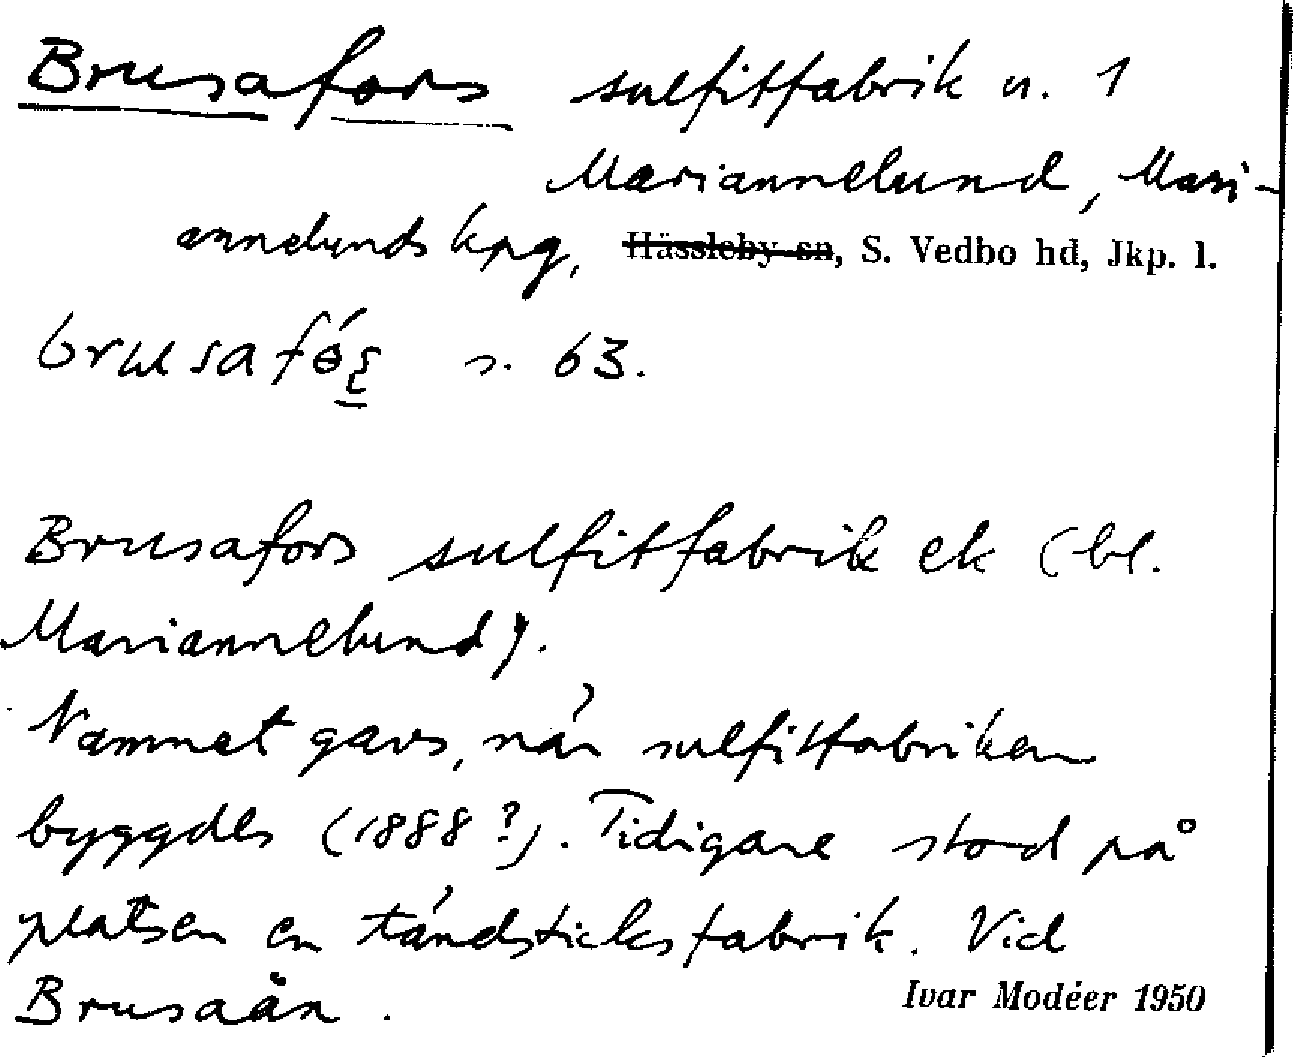 Brusafors sulfitfabrik n. 1
Mariannelund, Mari-
annelunds kpg, Hässleby sn, S. Vedbo hd, Jkp. l.
brusafó s. 63.
Brusafors sulfitfabrik ek (bl.
Mariannelund).
Namnet gavs, när sulfitfabriken
byggdes (1888?). Tidigare stod på
platsen en tändsticksfabrik. Vid
Brusaån.
Ivar Modéer 1950